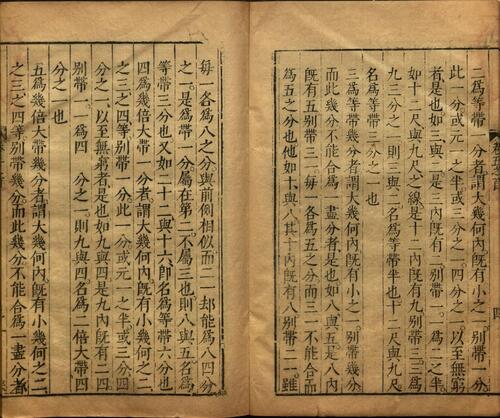 二爲等帶一分者謂大幾何內旣有小之一別帶一分
此一分或元一之半或三分之一四分之一以至無窮
者是也如三與二是三內旣有二別帶一一爲二之半
如十二尺與九尺之線是十二內旣有九別帶三三爲
九三分之一則三與二名爲等帶半也十二尺與九尺
名爲等帶三分之一也
三爲等帶幾分者謂大幾何內旣有小之一別帶幾分
而此幾分不能合爲一盡分者是也如八與五是八內
旣有五別帶三一每一各爲五之分而三一不能合而
爲五之分也他如十與八其十內旣有八別帶二一雖
每一各爲八之分與前例相似而二一却能爲八四分
之一是爲帶一分屬在第二不屬三也則八與五名爲
等帶三分也又如二十二與十六卽名爲等帶六分也
四爲幾倍大帶一分者謂大幾何內旣有小幾何之二
之三之四等別帶一分此一分或元一之半或三分四
分之一以至無窮者是也如九與四是九內旣有二四
別帶一一爲四四分之一則九與四名爲二倍大帶四
分之一也
五爲幾倍大帶幾分者謂大幾何內旣有小幾何之二
之三之四等別帶幾分而此幾分不能合爲一盡分者